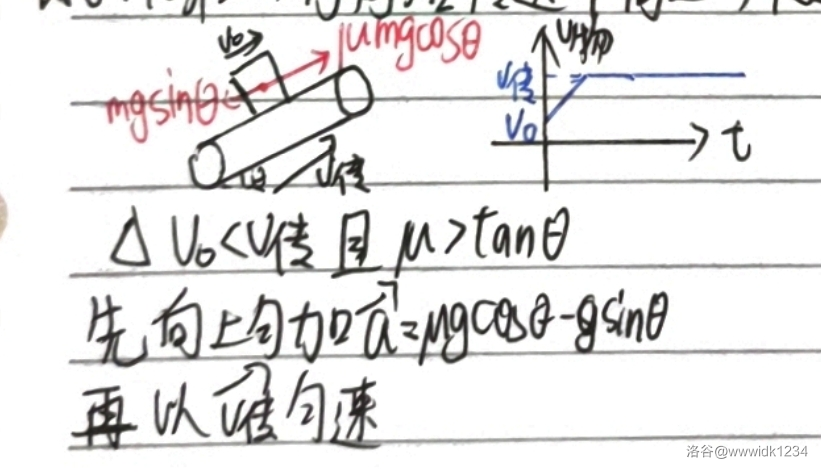 v₀
μmgcosθ
mgsinθ
θ
v传
v物
v传
v₀
t
△ v₀<v传 且 μ>tanθ
先向上匀加 a=μgcosθ-gsinθ
再以 v传 匀速
洛谷@wwwidk1234